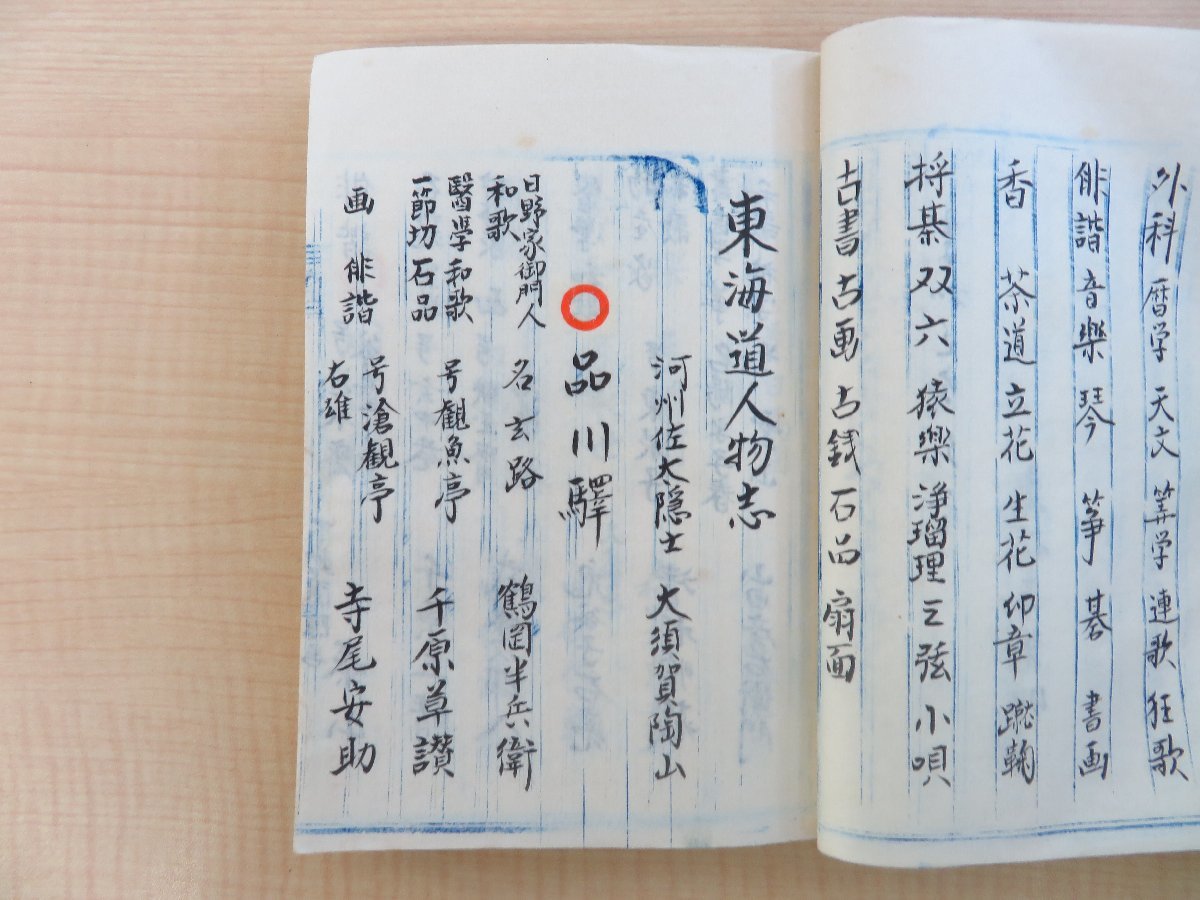 外科 暦学 天文 筭学 連歌 狂歌
俳諧 音樂 琴 筝 碁 書画
香 茶道 立花 生花 印章 蹴鞠
将棊 双六 猿樂 浄瑠理 三弦 小唄
古書 古画 古銭 石品 扇面
東海道人物志
河州佐太隠士 大須賀陶山
品川驛
日野家御門人
和歌
名玄路 鶴岡半兵衛
醫学和歌
一節切石品
号観魚亭 千原草讃
画 俳諧
号滄観亭
右雄
寺尾安助